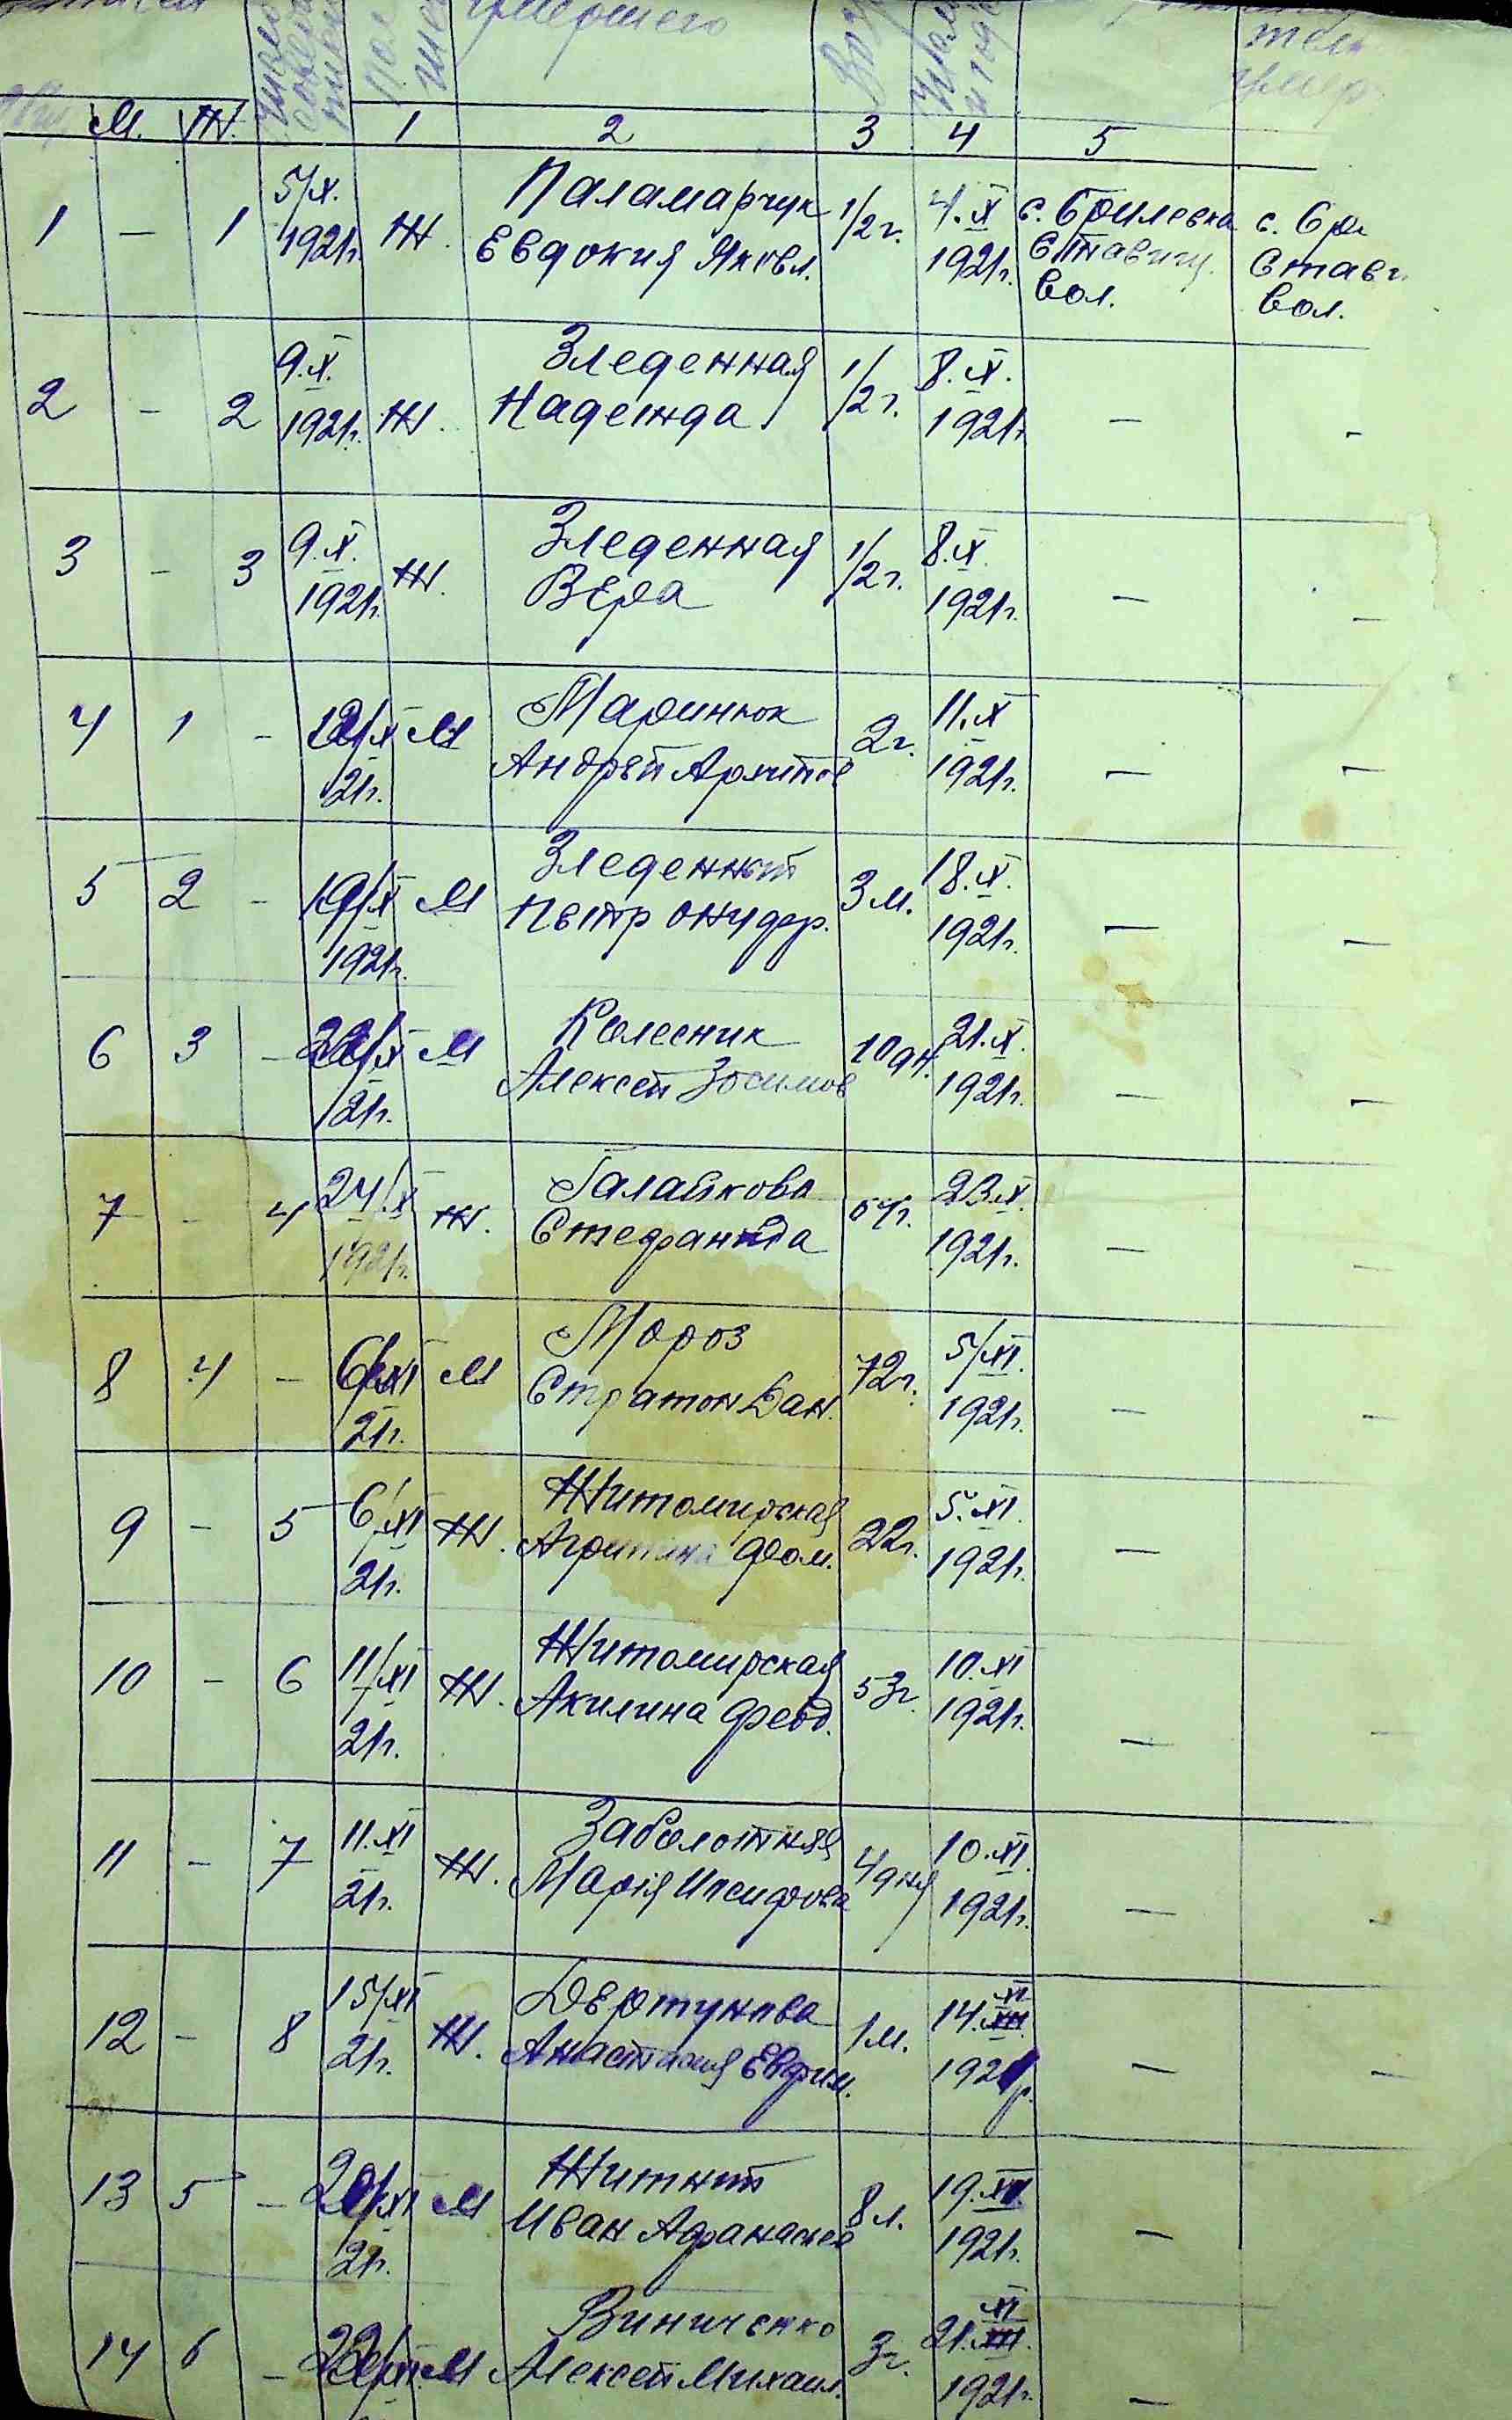 умершего
М. Ж. 1 2 3 4 5
1 — 1 5/X. 1921г. Ж. Паламарчук Евдокия Яковл. 1/2 г. 4.X 1921г. с. Брилевка Ставищ. вол. с. Бри Стави вол.
2 - 2 9.X. 1921г. Ж. Зледенная Надежда 1/2 г. 8.X. 1921г. — -
3 - 3 9.X. 1921г. Ж. Зледенная Вера 1/2 г. 8.X. 1921г. — —
4 1 - 12/X 21г. М Маринюк Андрей 2г. 11.X 1921г. — —
5 2 - 19/X 1921г. М Зледенный Петр 3 м. 18.X. 1921г. — —
6 3 - 22/X 21г. М Колесник Алексей Зосимов 10 дн. 21.X. 1921г. — —
7 - 4 24/X 1921г. Ж. Галайкова Стефанида 23.X. 1921г. — —
8 4 - 6/XI 21г. М Мороз Стратон Дан. 72г. 5/XI. 1921г. — —
9 - 5 6/XI 21г. Ж. Житомирская Агрипина Фом. 22г. 5.XI. 1921г. —
10 - 6 11/XI 21г. Ж. Житомирская Акилина Феод. 53г. 10.XI 1921г. — —
11 - 7 11.XI 21г. Ж. Заболотняя Марія 4 дня 10.XI. 1921г. — —
12 - 8 15/XI 21г. Ж. Дертунова Анастасия Евфим. 1м. 14.XI 1921г. — —
13 5 - 20/XI 21г. М Житний Иван Афанасиев 8 л. 19.XI 1921г. —
14 6 - 22/XI М Виниченко Алексей Михаил. 3г. 21.XI 1921г. —